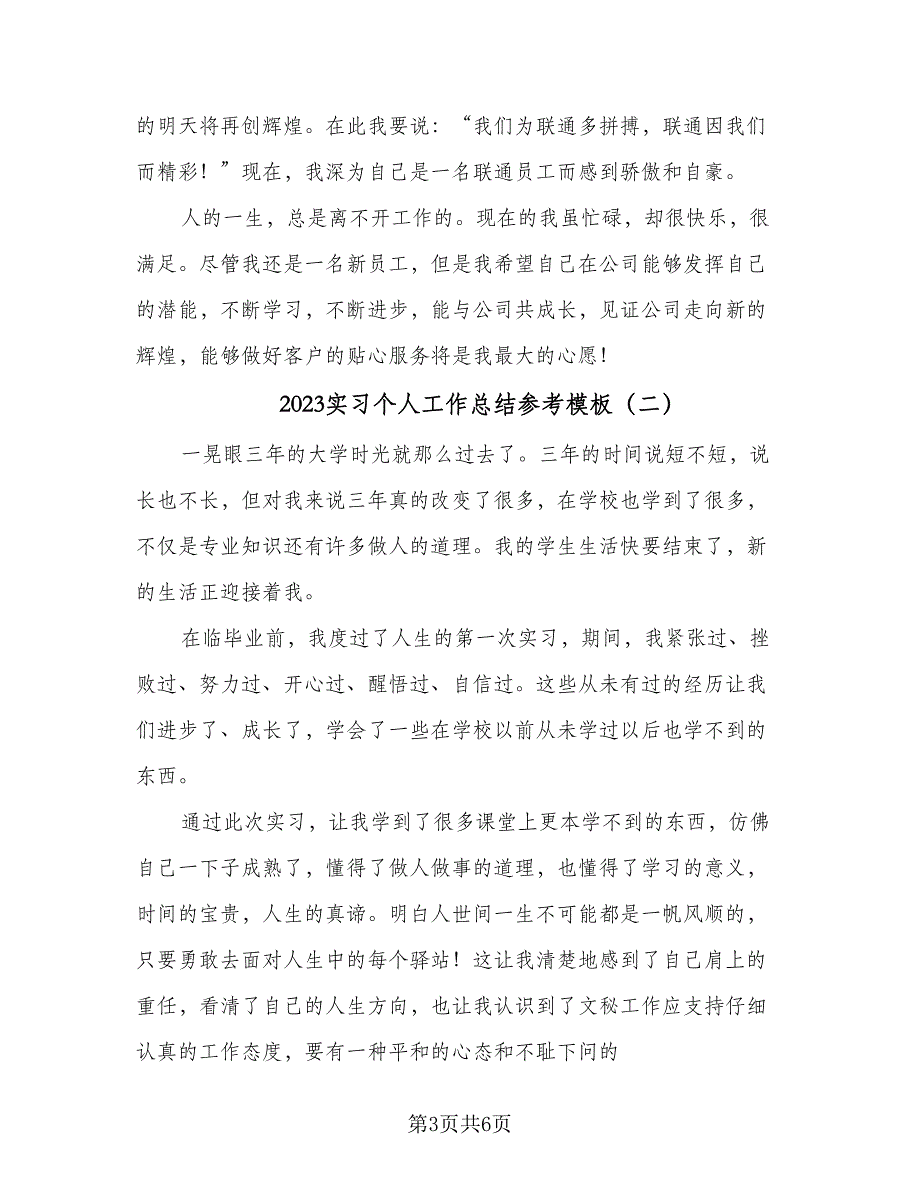 的明天将再创辉煌。在此我要说：“我们为联通多拼搏，联通因我们
而精彩！”现在，我深为自己是一名联通员工而感到骄傲和自豪。
人的一生，总是离不开工作的。现在的我虽忙碌，却很快乐，很
满足。尽管我还是一名新员工，但是我希望自己在公司能够发挥自己
的潜能，不断学习，不断进步，能与公司共成长，见证公司走向新的
辉煌，能够做好客户的贴心服务将是我最大的心愿！
2023实习个人工作总结参考模板（二）
一晃眼三年的大学时光就那么过去了。三年的时间说短不短，说
长也不长，但对我来说三年真的改变了很多，在学校也学到了很多，
不仅是专业知识还有许多做人的道理。我的学生生活快要结束了，新
的生活正迎接着我。
在临毕业前，我度过了人生的第一次实习，期间，我紧张过、挫
败过、努力过、开心过、醒悟过、自信过。这些从未有过的经历让我
们进步了、成长了，学会了一些在学校以前从未学过以后也学不到的
东西。
通过此次实习，让我学到了很多课堂上更本学不到的东西，仿佛
自己一下子成熟了，懂得了做人做事的道理，也懂得了学习的意义，
时间的宝贵，人生的真谛。明白人世间一生不可能都是一帆风顺的，
只要勇敢去面对人生中的每个驿站！这让我清楚地感到了自己肩上的
重任，看清了自己的人生方向，也让我认识到了文秘工作应支持仔细
认真的工作态度，要有一种平和的心态和不耻下问的
第3页共6页